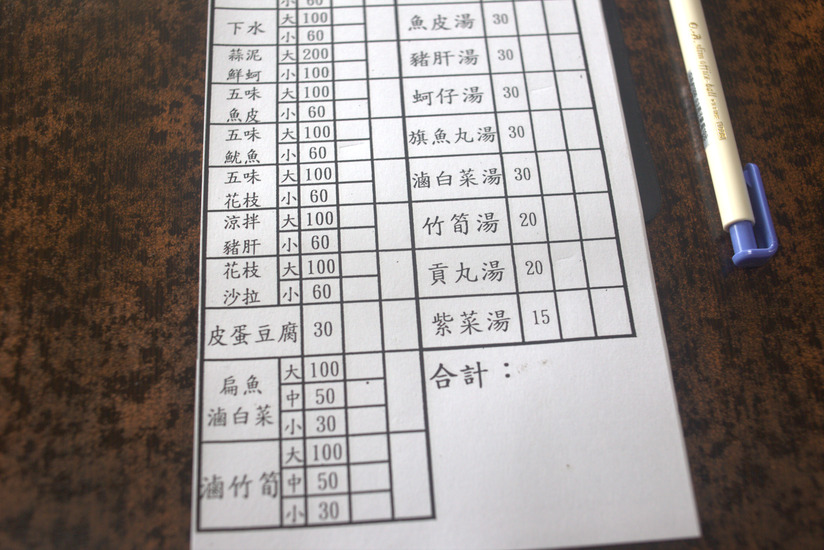 小 60
下水 大 100
小 60
蒜泥 大 200
鮮蚵 小 100
五味 大 100
魚皮 小 60
五味 大 100
魷魚 小 60
五味 大 100
花枝 小 60
涼拌 大 100
豬肝 小 60
花枝 大 100
沙拉 小 60
皮蛋豆腐 30
扁魚 大 100
滷白菜 中 50
小 30
滷竹筍 大 100
中 50
小 30
魚皮湯 30
豬肝湯 30
蚵仔湯 30
旗魚丸湯 30
滷白菜湯 30
竹筍湯 20
貢丸湯 20
紫菜湯 15
合計：